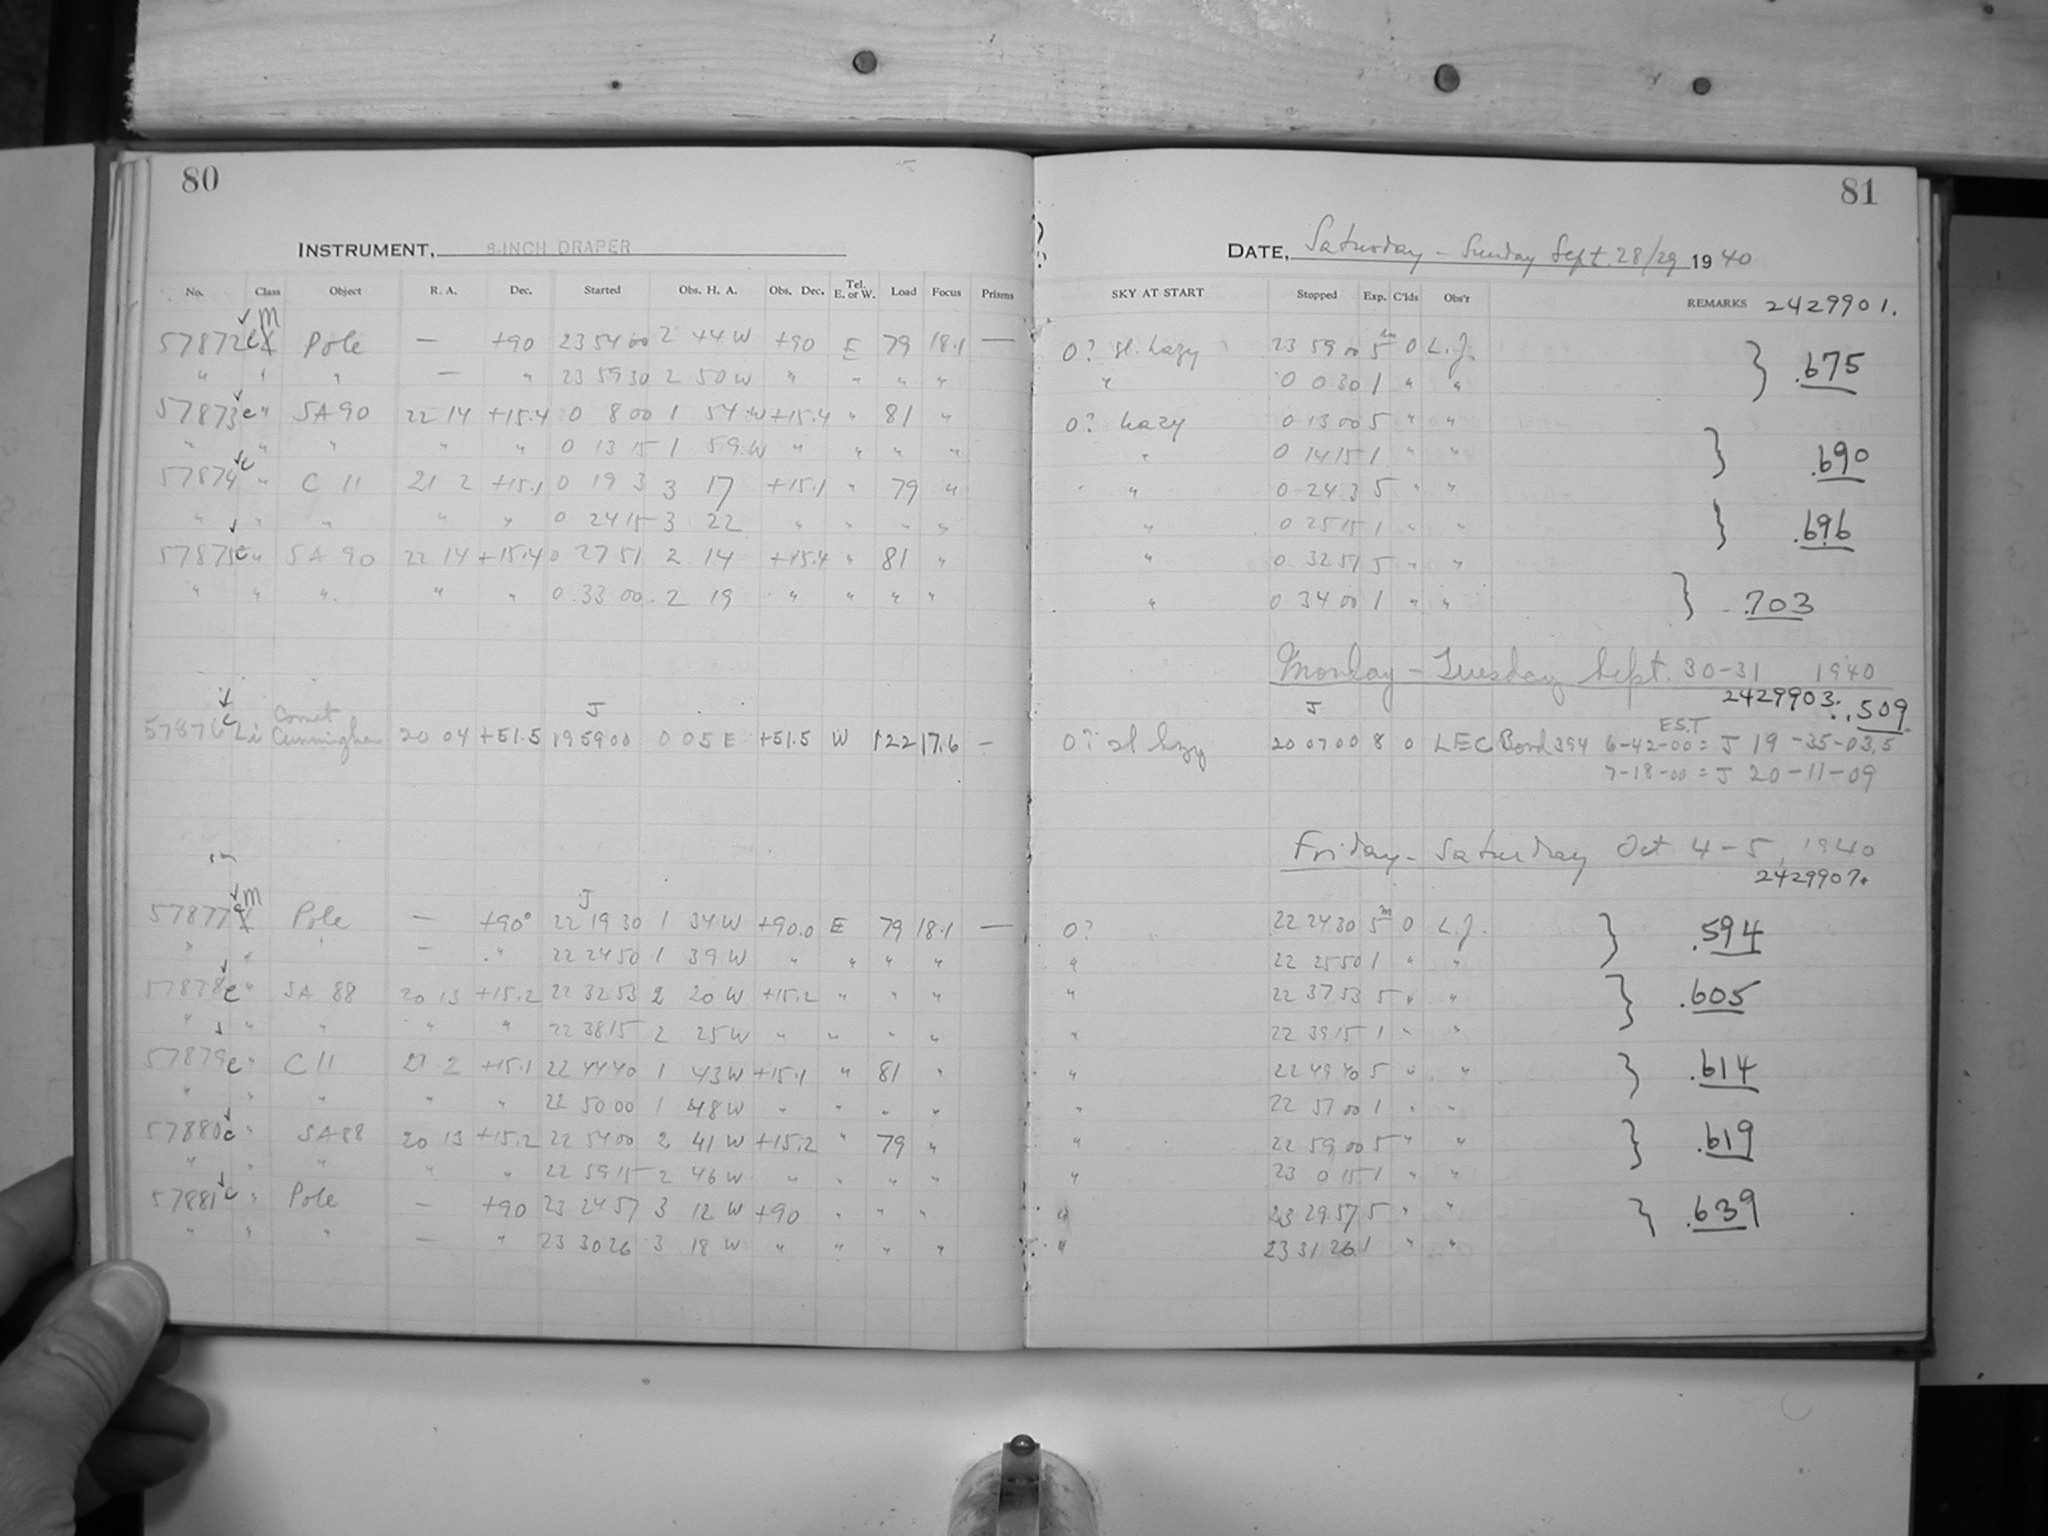 80
INSTRUMENT, 8-INCH DRAPER
No. Class Object R. A. Dec. Started Obs. H. A. Obs. Dec. Tel. E. or W. Load Focus Prisms
m
57872 Pole — +90 23 54 00 2 44 W +90 E 79 18.1 —
" " " — " 23 59 30 2 50 W " " " "
57873 c " SA 90 22 14 +15.4 0 8 00 1 54 W +15.4 " 81 "
" " " " " 0 13 15 1 59 W " " " "
57874 c " C 11 21 2 +15.1 0 19 3 3 17 +15.1 " 79 "
" " " " " 0 24 15 3 22 " " " "
57875 c " SA 90 22 14 +15.4 0 27 51 2 14 +15.4 " 81 "
" " " " " 0 33 00 2 19 " " " "
J
57876 c Li Comet Cunningham 20 04 +51.5 19 59 00 0 05 E +51.5 W 122 17.6 —
m J
57877 Pole — +90° 22 19 30 1 34 W +90.0 E 79 18.1 —
" " " — " 22 24 50 1 39 W " " " "
57878 c " SA 88 20 13 +15.2 22 32 53 2 20 W +15.2 " " "
" " " " " 22 38 15 2 25 W " " " "
57879 c " C 11 21 2 +15.1 22 44 40 1 43 W +15.1 " 81 "
" " " " " 22 50 00 1 48 W " " " "
57880 c " SA 88 20 13 +15.2 22 54 00 2 41 W +15.2 " 79 "
" " " " " 22 59 15 2 46 W " " " "
57881 c " Pole — +90 23 24 57 3 12 W +90 " " "
" " " — " 23 30 26 3 18 W " " " "
81
DATE, Saturday - Sunday Sept. 28/29 1940
SKY AT START Stopped Exp. C'lds Obs'r REMARKS 2429901.
0? sl. hazy 23 59 00 5m 0 L.J. } .675
" 0 0 30 1 " "
0? hazy 0 13 00 5 " "
" 0 14 15 1 " " } .690
" 0 24 3 5 " "
" 0 25 15 1 " " } .696
" 0 32 51 5 " "
" 0 34 00 1 " " } .703
Monday - Tuesday Sept. 30-31 1940
2429903. .509
J E.S.T
0? sl hazy 20 07 00 8 0 LEC Bond 394 6-42-00 = J 19-35-03.5
7-18-00 = J 20-11-09
Friday - Saturday Oct 4-5, 1940
2429907.
0? 22 24 30 5m 0 L.J. } .594
" 22 25 50 1 " "
" 22 37 53 5 " " } .605
" 22 39 15 1 " "
" 22 49 40 5 " " } .614
" 22 51 00 1 " "
" 22 59 00 5 " " } .619
" 23 0 15 1 " "
" 23 29 57 5 " " } .639
" 23 31 26 1 " "